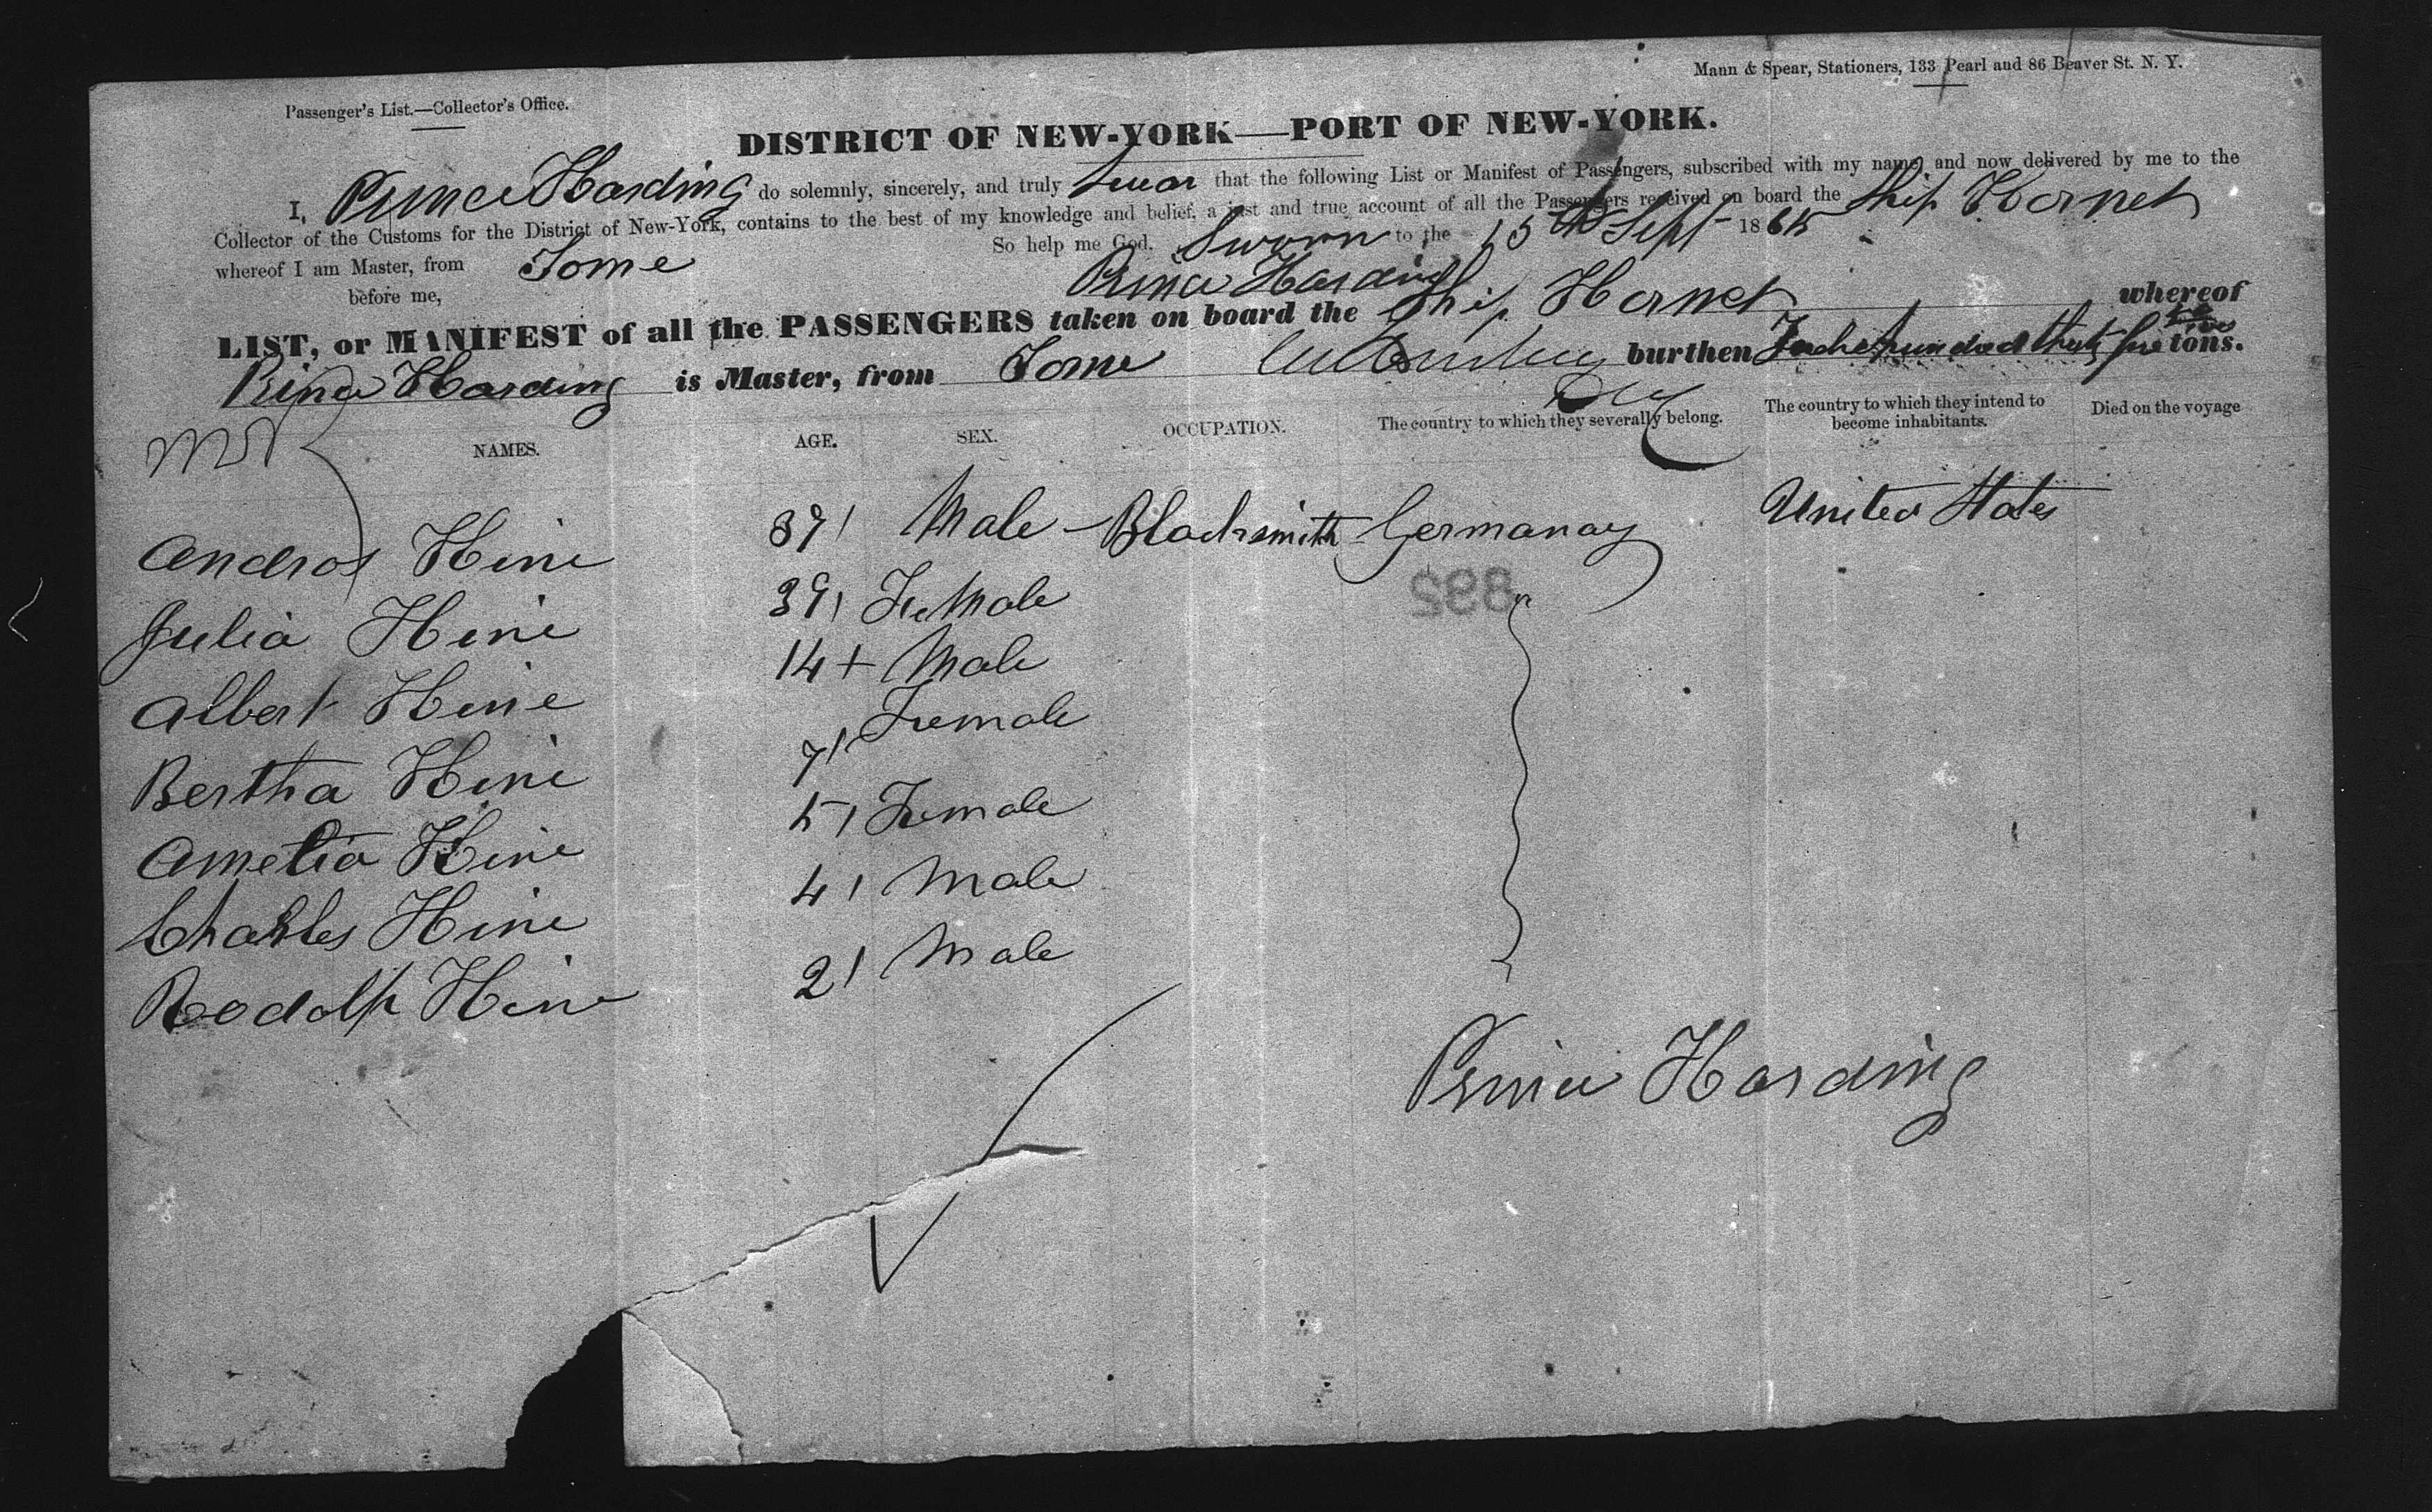 Mann & Spear, Stationers, 133 Pearl and 86 Beaver St. N. Y.
Passenger's List.—Collector's Office.
DISTRICT OF NEW-YORK—PORT OF NEW-YORK.
I, Prince Harding do solemnly, sincerely, and truly swear that the following List or Manifest of Passengers, subscribed with my name, and now delivered by me to the
Collector of the Customs for the District of New-York, contains to the best of my knowledge and belief, a just and true account of all the Passengers received on board the Ship Hornet
whereof I am Master, from Tome So help me God. Sworn to the 15th Sept 1864
before me, Prince Harding
LIST, or MANIFEST of all the PASSENGERS taken on board the Ship Hornet whereof
Prince Harding is Master, from Tome burthen tons.
NAMES. AGE. SEX. OCCUPATION. The country to which they severally belong. The country to which they intend to become inhabitants. Died on the voyage
Andros Hine 39 Male Blacksmith Germanay United States
Julia Hine 39 Female
Albert Hine 14 Male
Bertha Hine 7 Female
Amelia Hine 5 Female
Charles Hine 4 Male
Rodolph Hine 2 Male
892
Prince Harding